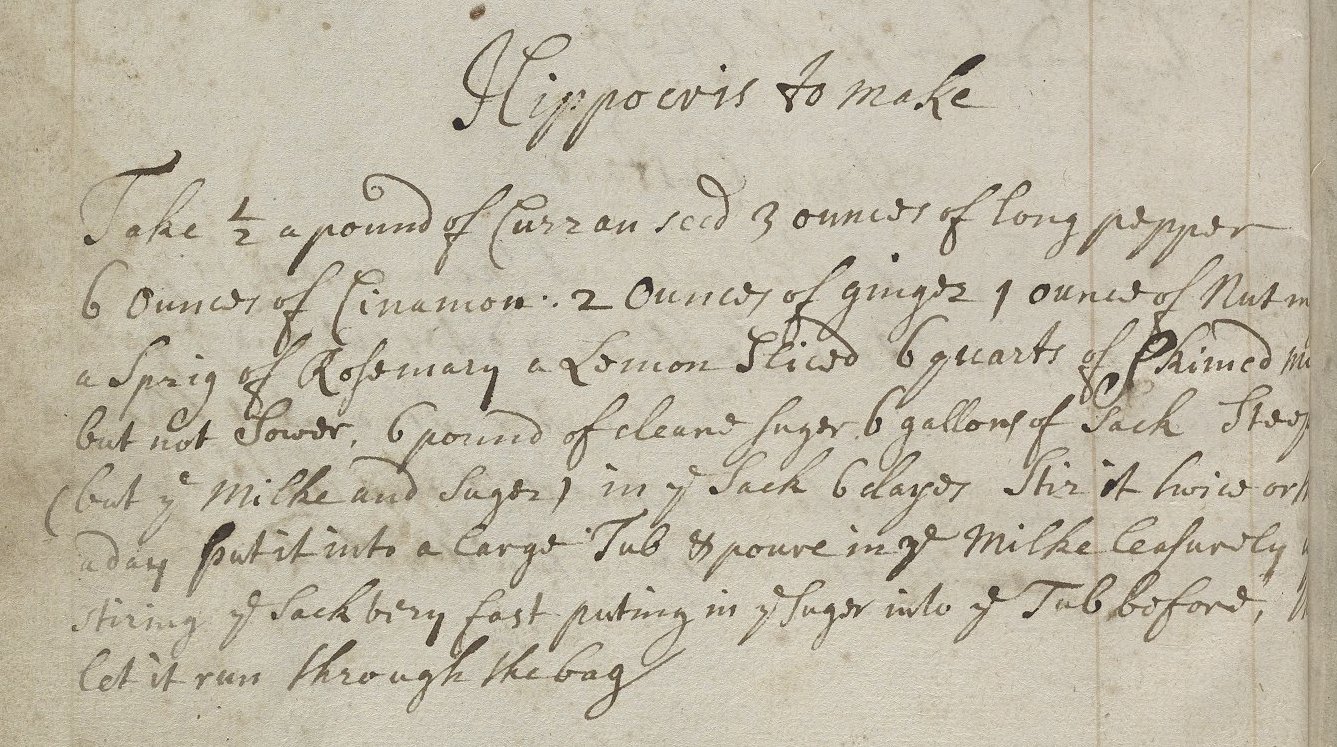 Hippocris to make
Take ½ a pound of Curran seed 3 ounces of long pepper
6 Ounces of Cinamon. 2 Ounces of ginger 1 ounce of Nut
a Sprig of Rosemary a Lemon Sliced 6 quarts of Skimed
but not Sower, 6 pound of cleane suger 6 gallons of Sack
(but ye Milke and Suger) in ye Sack 6 dayes Stir it twice or
a day put it into a large Tub & poure in ye Milke leasurely
stiring ye Sack very fast puting in ye suger into ye Tub before,
let it run through the bag